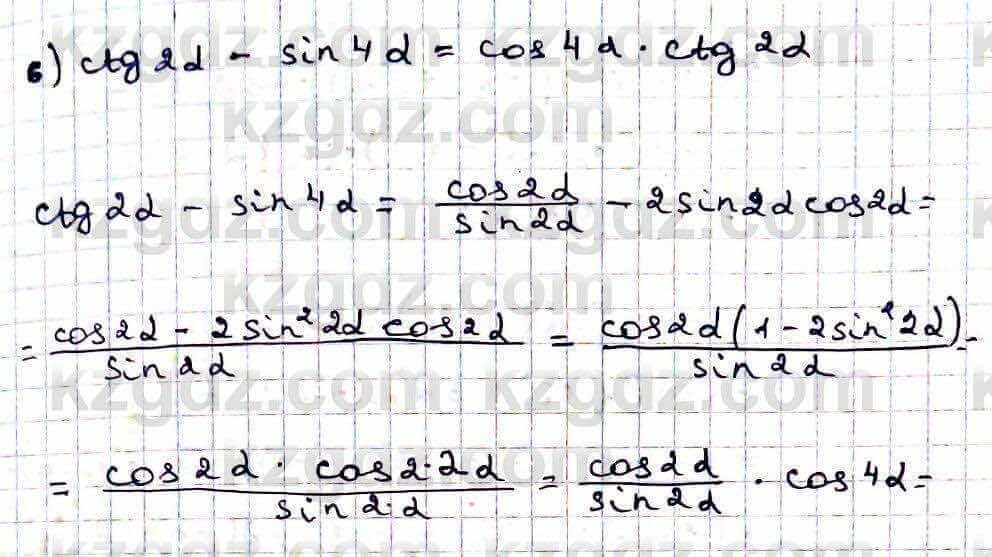 б) ctg 2α - sin 4α = cos 4α · ctg 2α
ctg 2α - sin 4α = cos 2α / sin 2α - 2 sin 2α cos 2α =
= (cos 2α - 2 sin² 2α cos 2α) / sin 2α = cos 2α (1 - 2 sin² 2α) / sin 2α =
= cos 2α · cos 2·2α / sin 2·α = cos 2α / sin 2α · cos 4α =
kzgdz.com